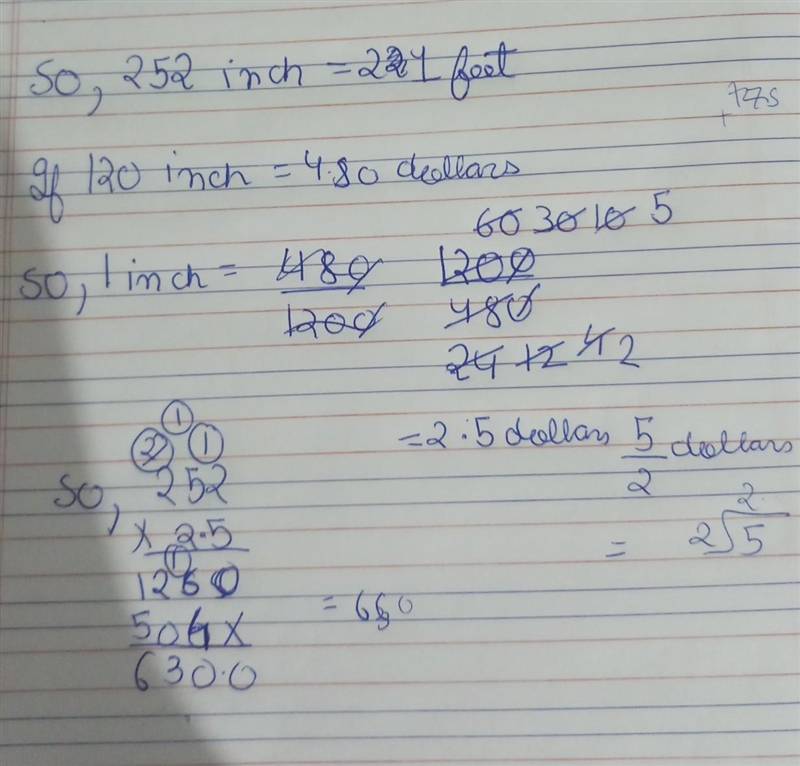 So, 252 inch = 221 feet
+7.25
If 120 inch = 4.80 dollars
60 30 10 5
So, 1 inch = 480 1200
1200 480
24 12 4 2
1
2 1 = 2.5 dollars 5 dollars
So, 252 2
x 2.5 = 2
1 2√5
1260
504x = 630
630.0